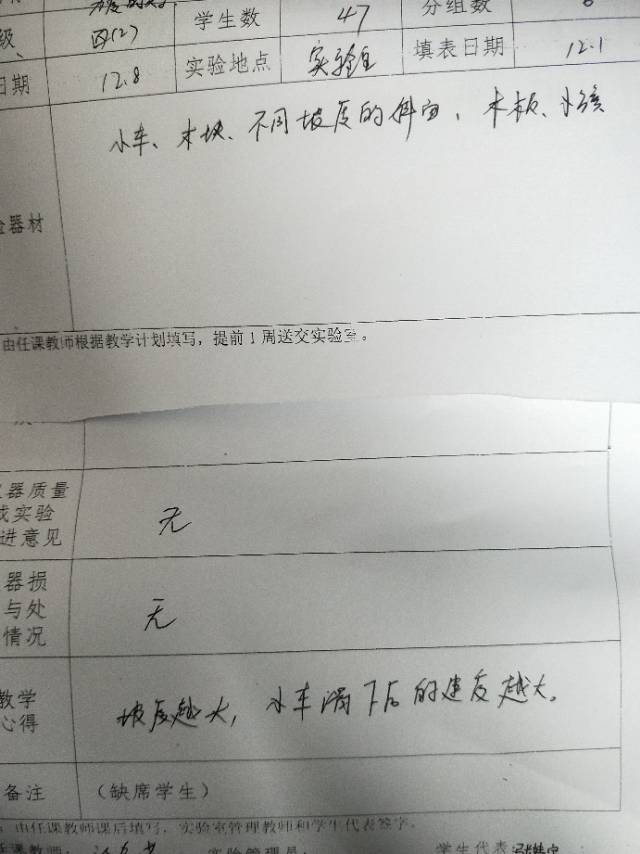 学生数 47 分组数
级 四(2)
日期 12.8 实验地点 实验室 填表日期 12.1
小车、木块、不同坡度的斜面、木板、小孩
器材
由任课教师根据教学计划填写，提前1周送交实验室。
器质量
或实验 无
进意见
器损
与处 无
情况
教学 坡度越大，小车滑下后的速度越大。
心得
备注 （缺席学生）
由任课教师课后填写，实验室管理教师和学生代表签字。
课教师： 实验管理员： 学生代表